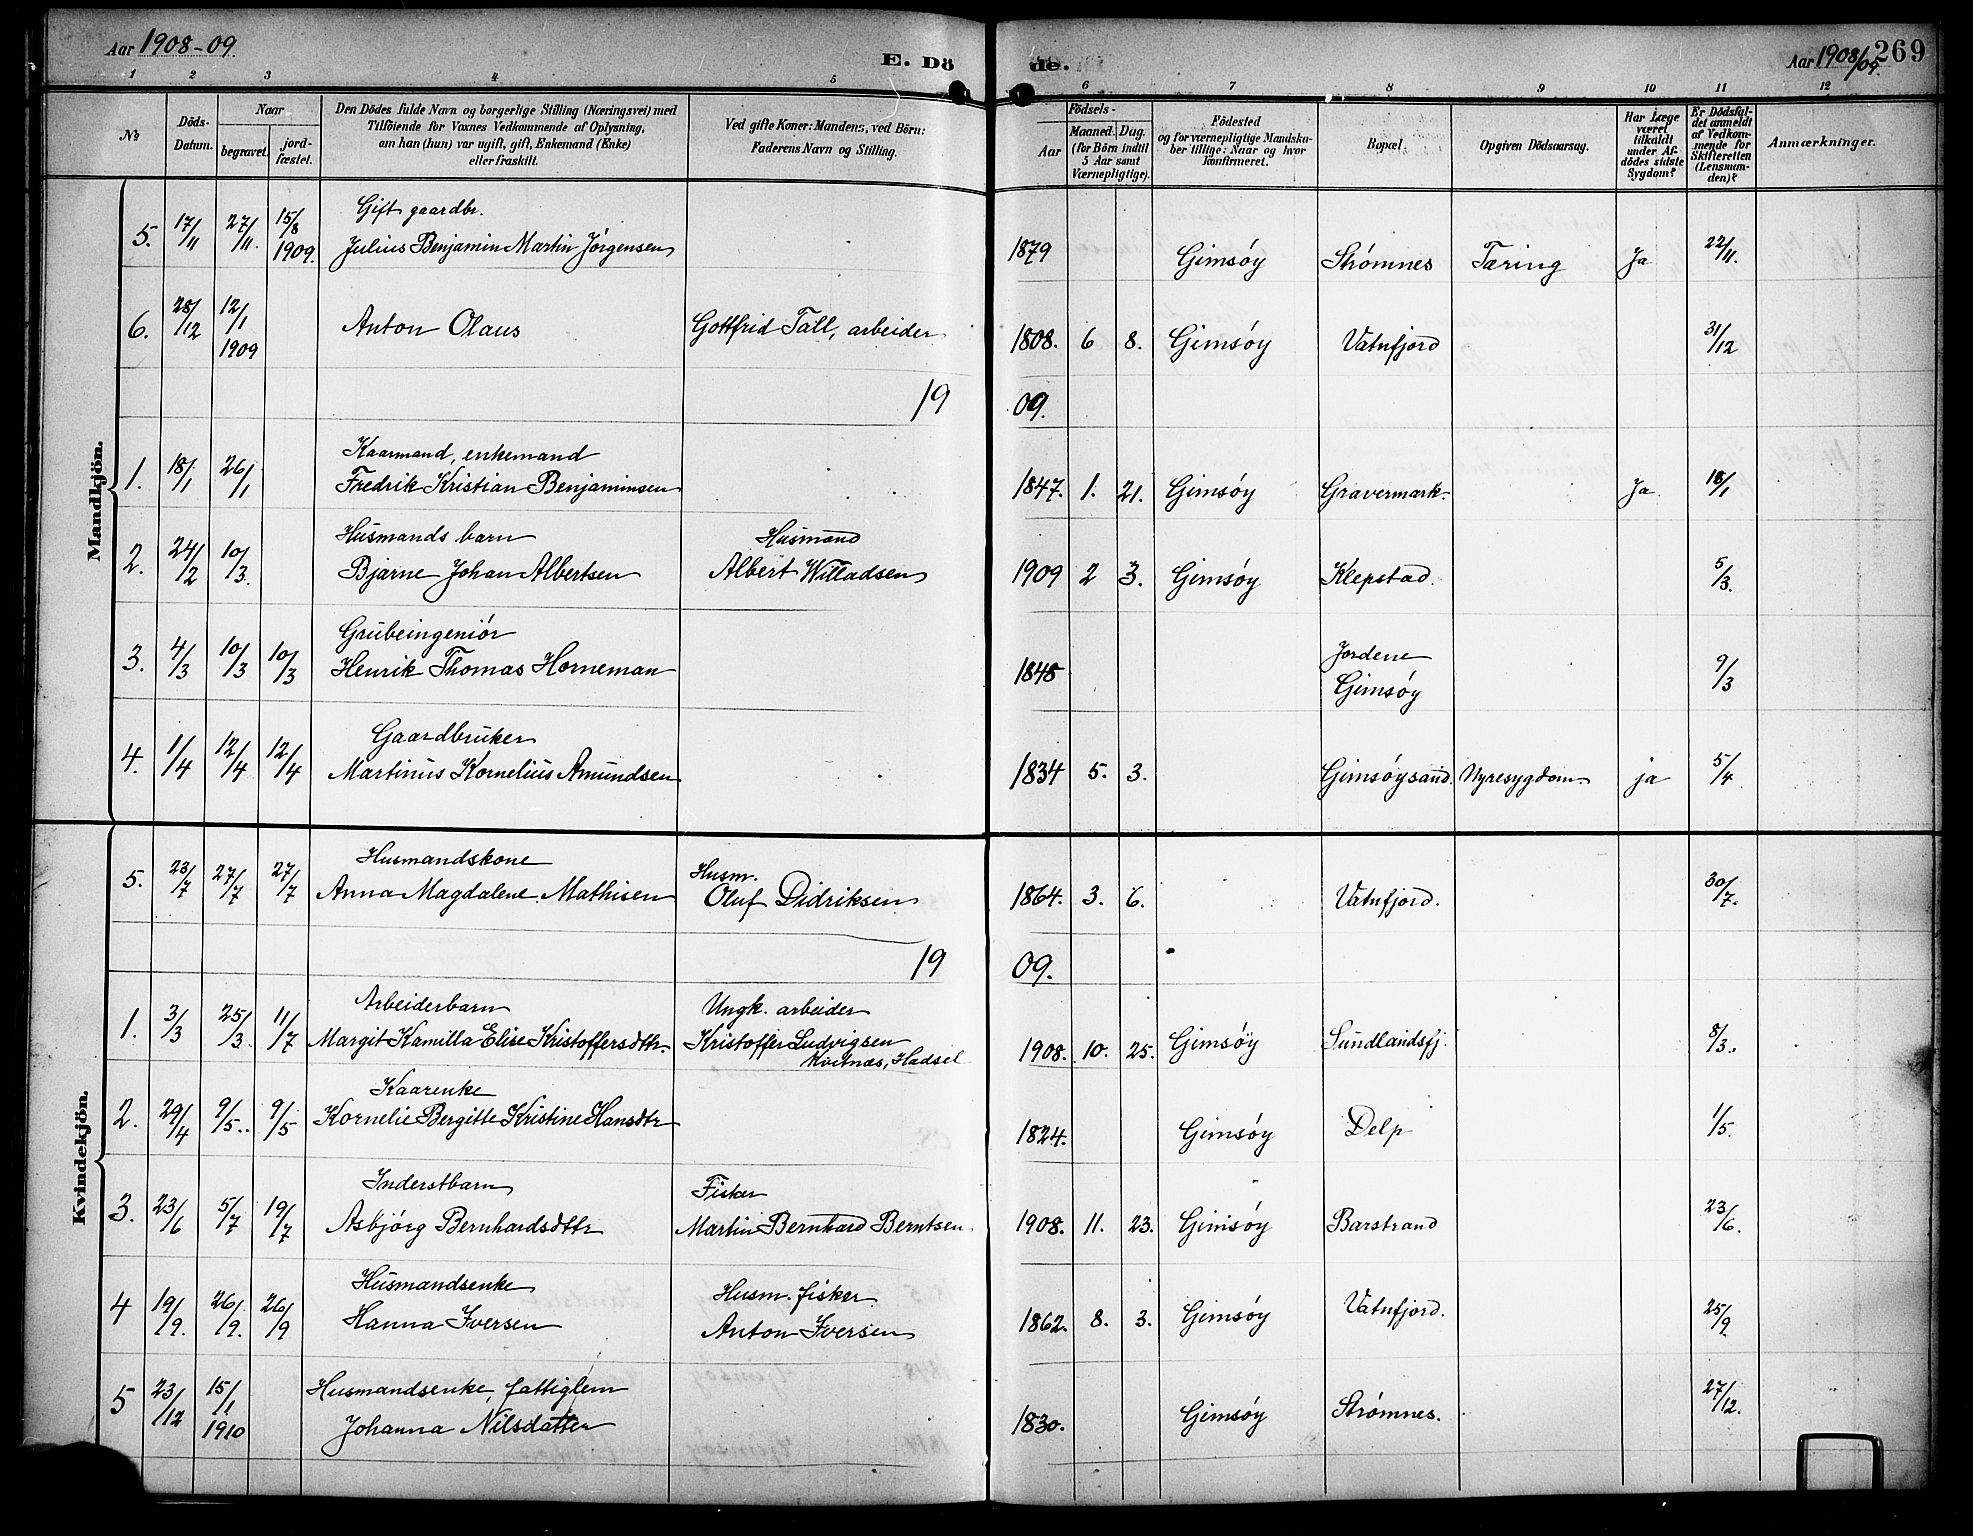 Aar 1908-09.
E. Dö
de.
Aar 1908/09. 269
1 2 3 4 5 6 7 8 9 10 11 12
№ Döds-Datum. Naar begravet. jord-fæstet.
Den Dödes fulde Navn og borgerlige Stilling (Næringsvei) med
Tilföiende for Voxnes Vedkommende af Oplysning,
om han (hun) var ugift, gift, Enkemand (Enke)
eller fraskilt.
Ved gifte Koner: Mandens, ved Börn:
Faderens Navn og Stilling.
Födsels-
Aar Maaned. Dag.
(for Börn indtil
5 Aar samt
Værnepligtige).
Födested
og for værnepligtige Mandska-
ber tillige: Naar og hvor
konfirmeret.
Bopæl.
Opgiven Dödsaarsag.
Har Læge
været
tilkaldt
under Af-
dödes sidste
Sygdom?
Er Dödsfal-
det anmeldt
af Vedkom-
mende for
Skifteretten
(Lensman-
den)?
Anmærkninger.
Mandkjön.
Gift gaardbr.
5. 17/11 27/11. 15/8 1909. Julius Benjamin Martin Jørgensen 1879 Gimsøy Strømnes Tæring Ja 22/11.
6. 28/12 12/1 1909 Anton Olaus Gottfrid Tall, arbeider 1808. 6 8. Gimsøy Vatnfjord 31/12
19 09.
Kaarmand, enkemand
1. 18/1 26/1 Fredrik Kristian Benjaminsen 1847. 1. 21. Gimsøy Gravermark- Ja. 18/1
Husmands barn Husmand
2. 24/2 10/3. Bjarne Johan Albertsen Albert Willadsen 1909 2 3. Gimsøy Klepstad. 5/3.
Grubeingeniør Jordene
3. 4/3 10/3 10/3 Henrik Thomas Horneman 1848 Gimsøy 9/3
Gaardbruker
4. 1/4 12/4 12/4 Martinus Kornelius Amundsen 1834 5. 3. Gimsøysand. Nyresygdom. ja 5/4
Kvindekjön.
Husmandskone Husm.
5. 23/7 27/7 27/7 Anna Magdalene Mathisen Oluf Didriksen 1864. 3. 6. Vatnfjord. 30/7.
19 09.
Arbeiderbarn Ungk. arbeider
1. 3/3 25/3. 11/7 Margit Kamilla Elise Kristoffersdttr. Kristoffer Ludvigsen 1908. 10. 25. Gimsøy Sundlandsfj. 8/3.
Kvitnæs, Hadsel
Kaarenke
2. 29/4 9/5.. 9/5 Kornelie Bergitte Kristine Hansdtr 1824. Gimsøy Delp 1/5.
Inderstbarn Fisker
3. 23/6 5/7 19/7 Asbjørg Bernhardsdttr Martin Bernhard Berntsen 1908. 11. 23. Gimsøy Barstrand 23/6.
Husmandsenke Husm. fisker
4 19/9. 26/9. 26/9 Hanna Iversen Anton Iversen 1862. 8. 3. Gimsøy Vatnfjord. 25/9
Husmandsenke, fattiglem
5 23/12 15/1 1910 Johanna Nilsdatter 1830. Gimsøy Strømnes. 27/12.